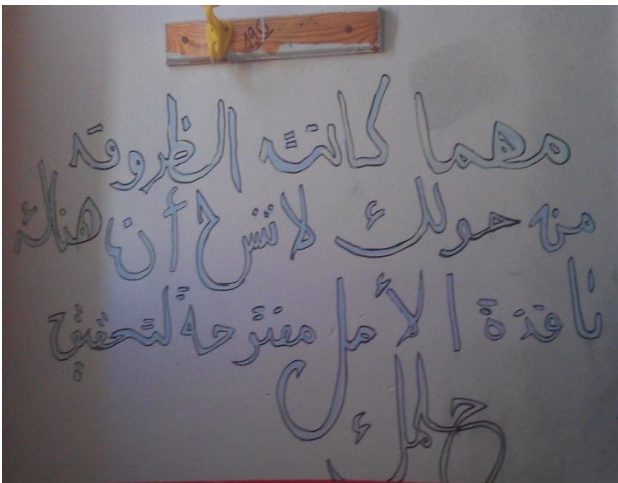 مهما كانت الظروف
من حولك لا تنسى أن هناك
نافذة الأمل مفتوحة لتحقيق
حلمك